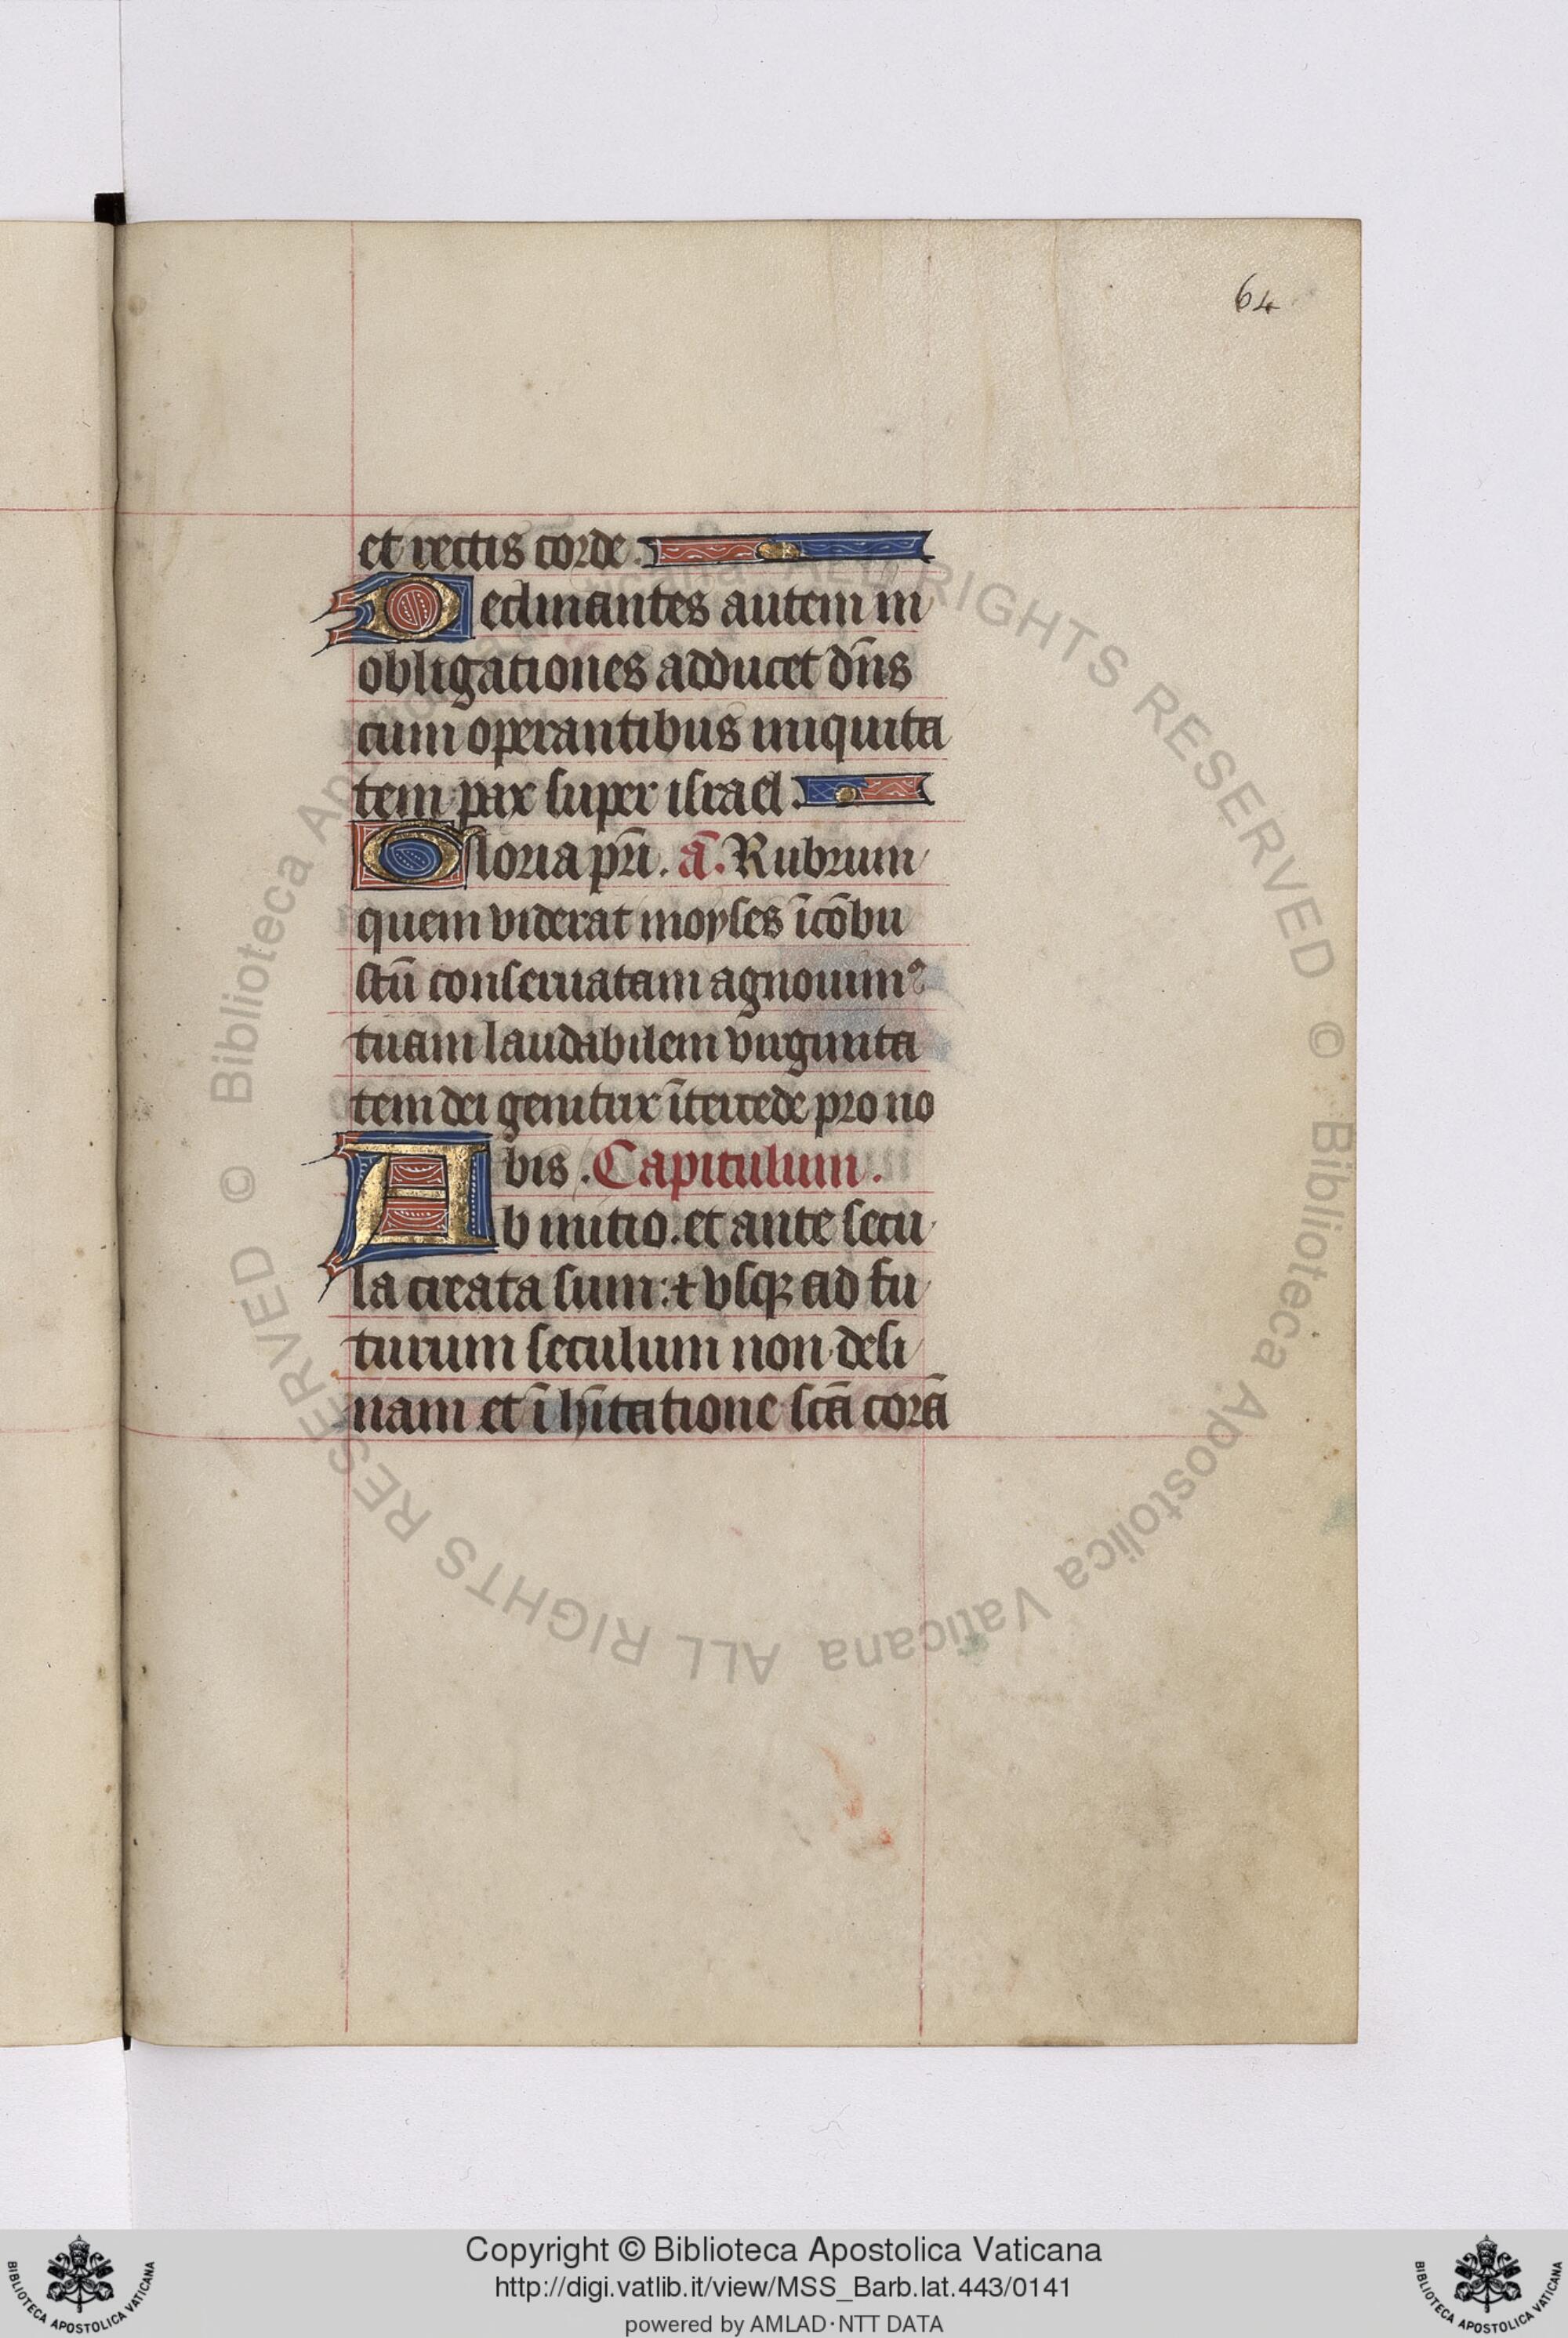 64
et rectis corde.
Declinantes autem in
obligationes adducet dn̄s
cum operantibus iniquita
tem pax super israel.
Gloria pr̄i. a᷉. Rubrum
quem viderat moyses īcōbu
stū conseruatam agnouim᷒
tuam laudabilem virginita
tem dei genitrix ītercede pro no
bis. Capitulum.
Ab initio. et ante secu
la creata sum: ⁊ vsqꝫ ad fu
turum seculum non desi
nam et ī hītatione scā corā
© Biblioteca Apostolica Vaticana ALL RIGHTS RESERVED
© Biblioteca Apostolica Vaticana ALL RIGHTS RESERVED
Copyright © Biblioteca Apostolica Vaticana
http://digi.vatlib.it/view/MSS_Barb.lat.443/0141
powered by AMLAD·NTT DATA
BIBLIOTECA APOSTOLICA VATICANA
BIBLIOTECA APOSTOLICA VATICANA